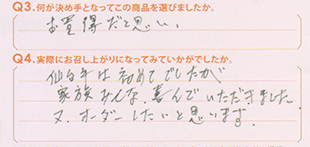 Q3.何が決め手となってこの商品を選びましたか。
お買得だと思い、
Q4.実際にお召し上がりになってみていかがでしたか。
仙台牛は初めてでしたが
家族みんな、喜んでいただきました
又、オーダーしたいと思います。